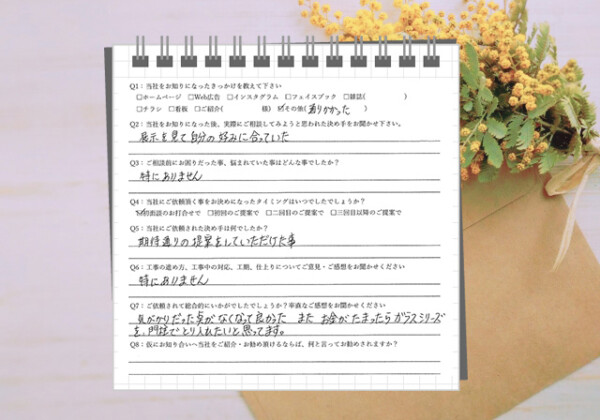 Q1：当社をお知りになったきっかけを教えて下さい
□ホームページ □Web広告 □インスタグラム □フェイスブック □雑誌(　　　)
□チラシ □看板 □ご紹介(　　　様) ☑その他(通りかかった　)
Q2：当社をお知りになった後、実際にご相談してみようと思われた決め手をお聞かせ下さい。
展示を見て自分の好みに合っていた
Q3：ご相談前にお困りだった事、悩まれていた事はどんな事でしたか？
特にありません
Q4：当社にご依頼頂く事をお決めになったタイミングはいつでしたでしょうか？
☑初回面談のお打合せで □初回のご提案で □二回目のご提案で □三回目以降のご提案で
Q5：当社にご依頼された決め手は何でしたか？
期待通りの提案をしていただけた事
Q6：工事の進め方、工事中の対応、工期、仕上りについてご意見・ご感想をお聞かせください
特にありません
Q7：ご依頼されて総合的にいかがでしたでしょうか？率直なご感想をお聞かせください
気がかりだった点がなくなって良かった また お金がたまったらガラスシリーズ
を、門柱でとり入れたいと思ってます。
Q8：仮にお知り合いへ当社をご紹介・お勧め頂けるならば、何と言ってお勧めされますか？